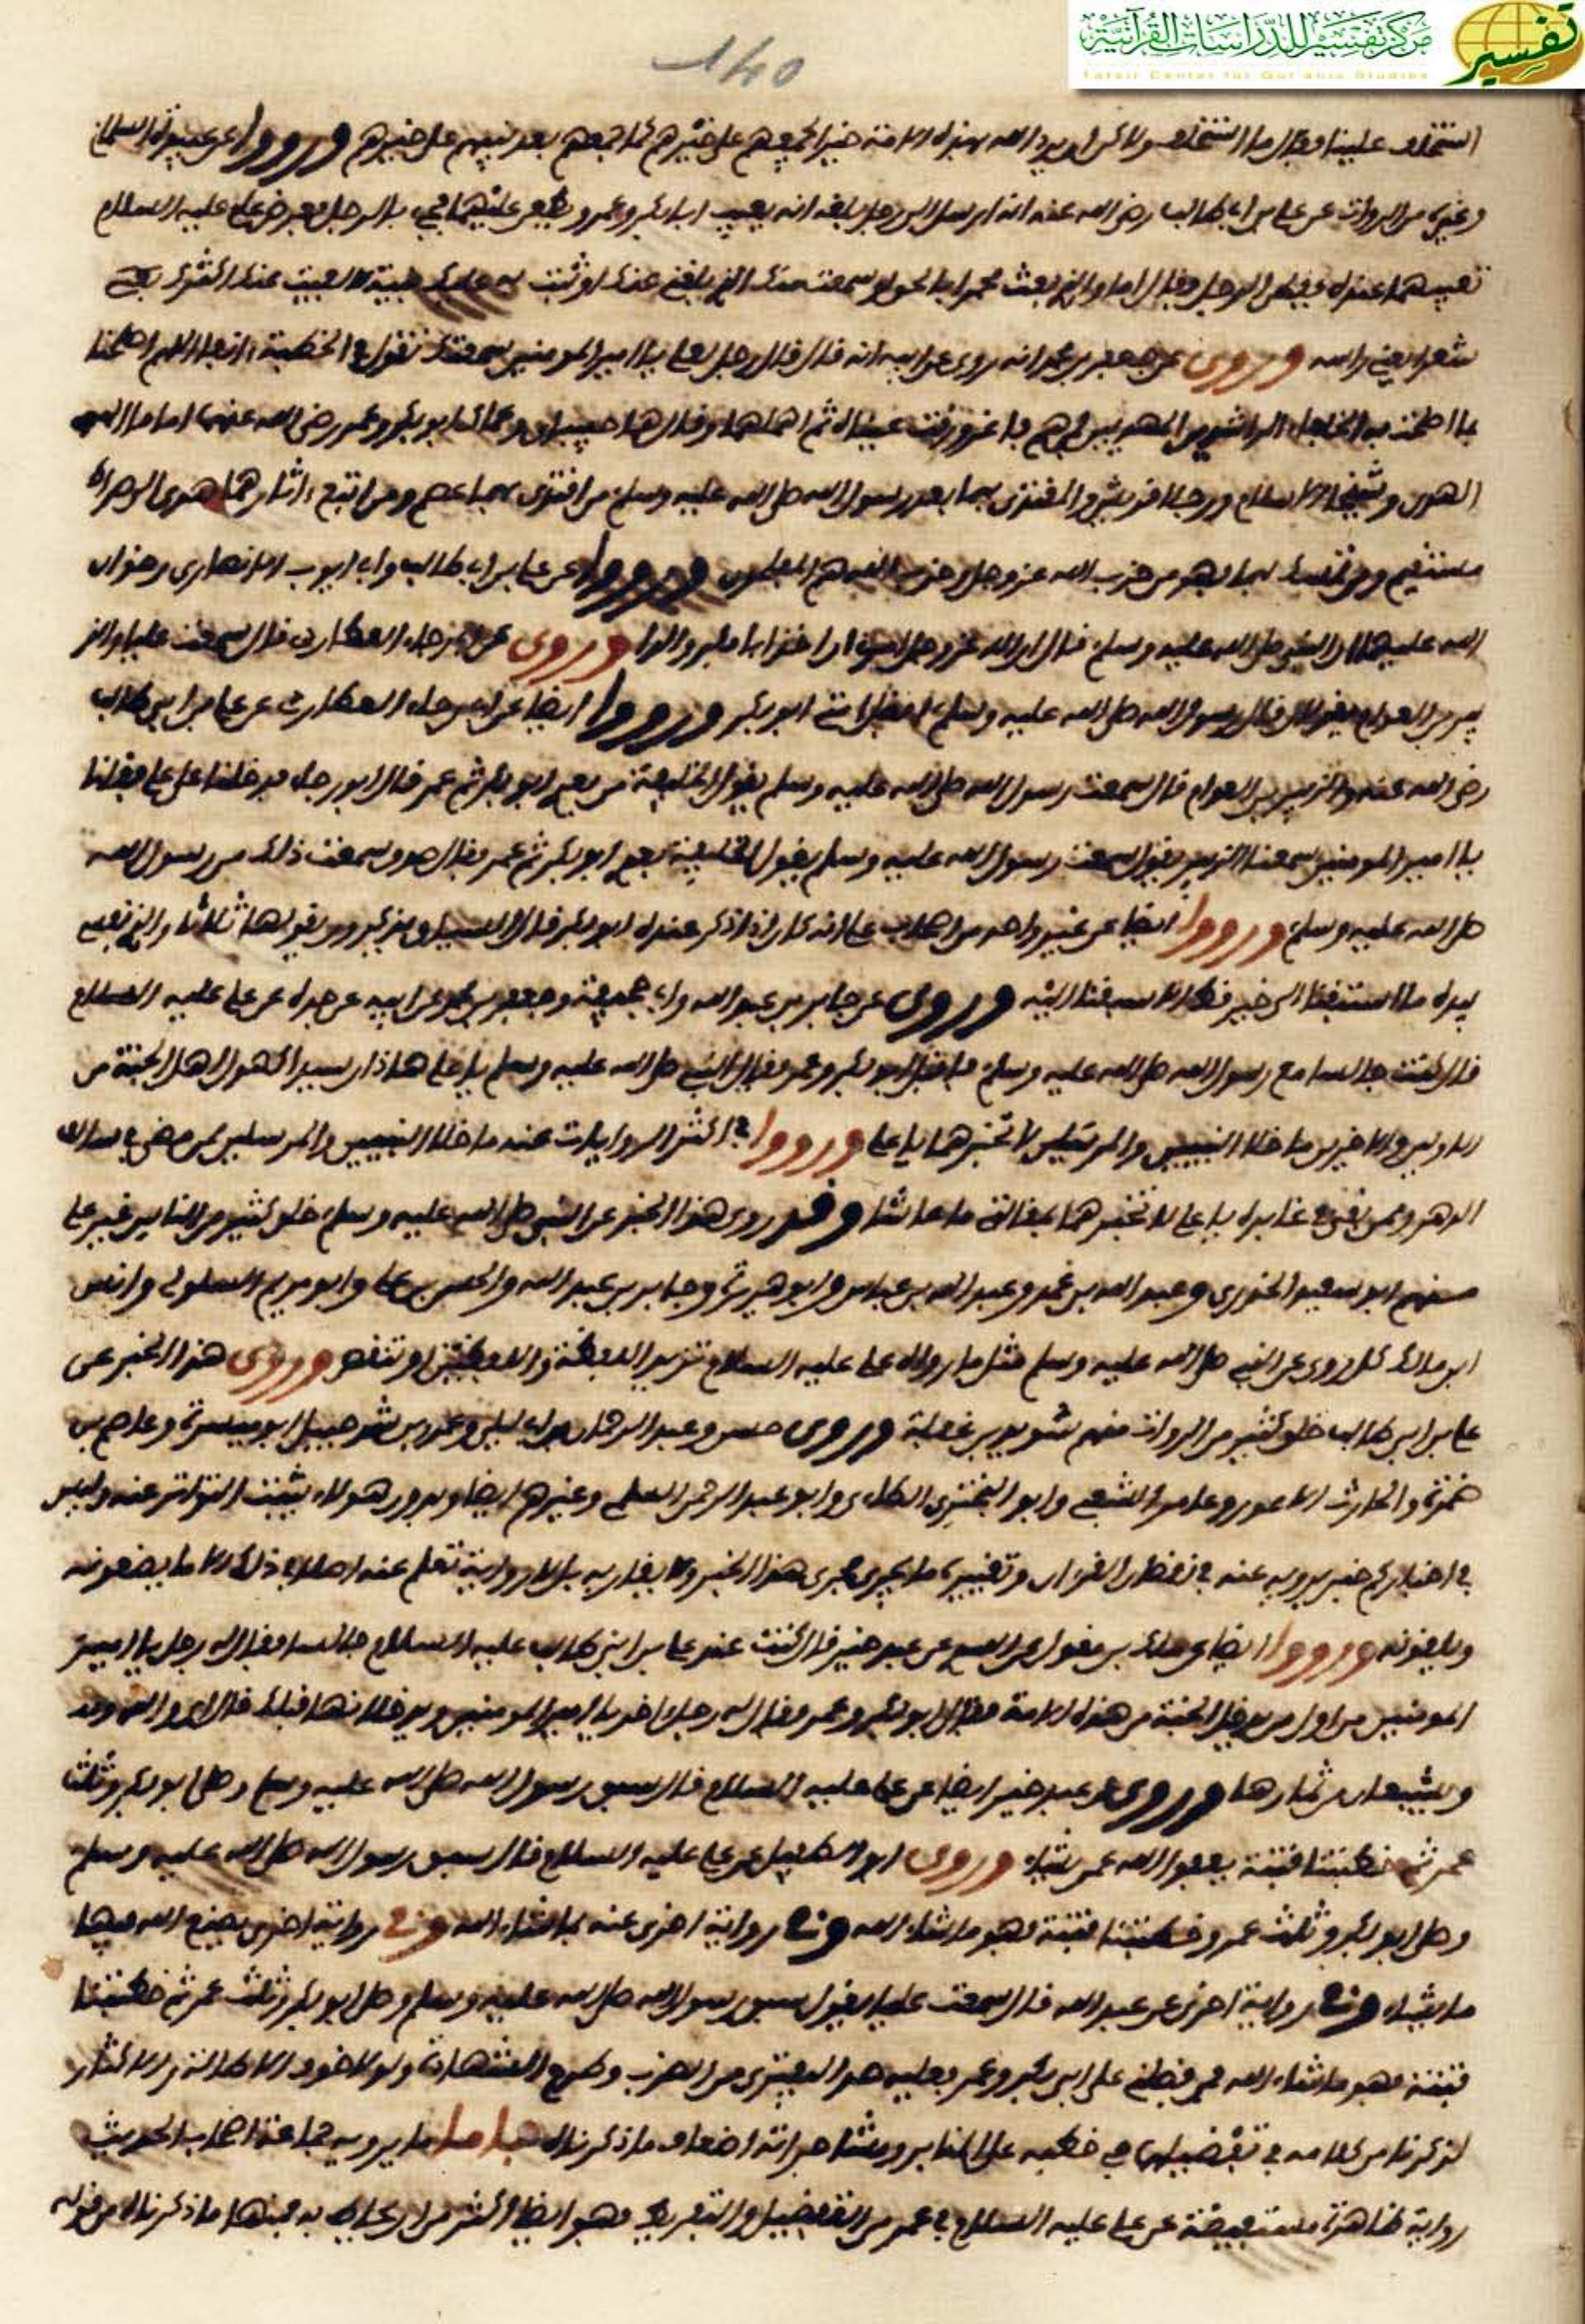 مركز تفسير للدراسات القرآنية
تفسير
Tafsir Center for Qur'anic Studies
140
استخلف علينا فقال ما استخلف ولاكن ان يرد الله بهذه الامة خيرا يجمعهم على خيرهم كما جمعهم بعد نبيهم على خيرهم ورووا عن
وغيره من الروات عن علي بن ابي طالب رضي الله عنه انه ارسل الى رجل بلغه انه يعيب ابا بكر وعمر ويطعن عليهما فجيء بالرجل فعرض علي عليه السلام
شعرا يعني راسه وروي عن جعفر بن محمد انه روى عن ابيه انه قال قال رجل لعلي يا امير المومنين سمعتك تقول في الخطبة انفا اللهم اصلحنا
بما اصلحت به الخلفاء الراشدين المهديين فمن هم فاغرورقت عيناه ثم اهملهما وقال هما حبيباي وعماك ابو بكر وعمر رضي الله عنهما اماما
الهدى وشيخا الاسلام ورجلا قريش والمقتدى بهما بعد رسول الله صلى الله عليه وسلم من اقتدى بهما عصم ومن اتبع اثارهما هدي الى صراط
مستقيم ومن تمسك بهما فهو من حزب الله عز وجل وحزب الله هم المفلحون ورووا عن علي بن ابي طالب وابي ايوب الانصاري رضوان
الله عليهما ان النبي صلى الله عليه وسلم قال ان الله عز وجل ابا بكر والدا وروي عن ابي رجاء العطاردي قال سمعت عليا والز
بير بن العوام يقولان قال رسول الله صلى الله عليه وسلم افضل امتي ابو بكر ورووا ايضا عن ابي رجاء العطاردي عن علي بن ابي طالب
رضي الله عنه والزبير بن العوام قال سمعت رسول الله صلى الله عليه وسلم يقول الخليفة من بعدي ابو بكر ثم عمر قال ابو رجاء فدخلنا على علي فقلنا
يا امير المومنين سمعنا الزبير يقول سمعت رسول الله عليه وسلم يقول الخليفة بعدي ابو بكر ثم عمر فقال صدق سمعت ذلك من رسول الله
صلى الله عليه وسلم ورووا ايضا عن غير واحد من اصحاب علي انه كان اذا ذكر عنده ابو بكر قال السباق يذكرون يقولها ثلاثا والذي نفسي
بيده ما استبقنا الى خير قط الا سبقنا اليه وروي عن جابر بن عبد الله وابي جحيفة وجعفر بن محمد عن ابيه عن جده عن علي عليه السلام
قال كنت جالسا مع رسول الله صلى الله عليه وسلم فاقبل ابو بكر وعمر فقال النبي صلى الله عليه وسلم يا علي هاذان سيدا كهول اهل الجنة من
الاولين والاخرين ما خلا النبيين والمرسلين لا تخبرهما يا علي ورووا في اكثر الروايات عنه ما خلا النبيين والمرسلين ممن مضى في سالف
الدهر ومن بقي في غابره يا علي لا تخبرهما بمقالتي ما عاشا وقد روى هذا الخبر عن النبي صلى الله عليه وسلم خلق كثير من الناس غير علي
منهم ابو سعيد الخدري وعبد الله بن عمر وعبد الله بن عباس وابو هريرة وجابر بن عبد الله والحسن بن علي وابو مريم السلولي وانس
ابن مالك كل روى عن النبي صلى الله عليه وسلم مثل ما رواه علي عليه السلام تزيد اللفظة واللفظتين او تنقص وروى هذا الخبر عن
علي بن ابي طالب خلق كثير من الروات منهم سويد بن غفلة وروى حسن وعبد الرحمان بن ابي ليلى وعمرو بن شرحبيل ابو ميسرة وعاصم بن
ضمرة والحارث الاعور وعامر الشعبي وابو البختري الطائي وابو عبد الرحمن السلمي وغيرهم ايضا وبدون هولاء يثبت التواتر عنه وليس
في اخباركم خبر يرويه عنه في نقصان القران وتغييره ما يجري مجرى هذا الخبر ولا يقاربه بل لا رواية تعلم عنه اصلا في ذلك الا ما يضعونه
ويلفقونه ورووا ايضا عن مالك بن مغول عن عبد خير قال كنت عند علي بن ابي طالب عليه السلام جالسا فقال له رجل يا امير
المومنين من اول من يدخل الجنة من هذه الامة فقال ابو بكر وعمر فقال له رجل اخر يا امير المومنين ويدخلانها قبلك قال اي والله
ويشبعان من ثمارها وروى عبد خير ايضا عن علي عليه السلام قال سبق رسول الله صلى الله عليه وسلم وصلى ابو بكر وثلث
عمر ثم خبطتنا فتنة يعفو الله عمن يشاء وروى ابو الطفيل عن علي عليه السلام قال سبق رسول الله صلى الله عليه وسلم
وصلى ابو بكر وثلث عمر وخبطتنا فتنة فهو ما شاء الله وفي رواية اخرى عنه فما شاء الله وفي رواية اخرى يصنع الله فيها
ما يشاء وفي رواية اخرى عن عبد الله قال سمعت عليا يقول سبق رسول الله صلى الله عليه وسلم وصلى ابو بكر وثلث عمر ثم خبطتنا
فتنة فهو ما شاء الله فمن فضلني على ابي بكر وعمر فعليه حد المفتري من الضرب وطرح الشهادة ولولا خوف الاطالة والاكثار
لذكرنا من كلامه في تفضيلهما في خطبه على المنابر ومشاهراته اضعاف ما ذكرناه فاما ما يرويه جماعة اصحاب الحديث
رواية ظاهرة مستفيضة عن علي عليه السلام في عمر من التفضيل والتقريظ فهو ايضا اكثر من ان يحاط به فمنها ما ذكرناه من قوله